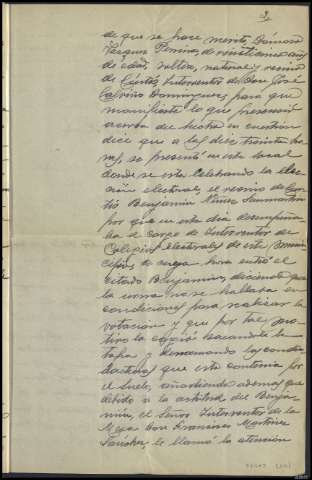 de que se hace merito, Dámaso
Vázquez Pereira, de veintinueve años
de edad, soltero, natural y vecino
de Cástro, Interventor de Don José
Calviño Dominguez, para que
manifieste lo que presenció
acerca del hecho en cuestion
dice que a las diez treinta ho
ras, se presentó en este local
donde se esta celebrando la elec
ción electoral, el vecino de
Benjamin Núñez
por que en este dia desempeña
ba el cargo de Interventor de
Colegio electoral de este Muni
cipio, de cuya hora entró el
citado Benjamin, diciendo que
la urna no se hallaba en
condiciones para realizar la
votación y que por tal mo
tivo la cogió sacandole la
tapa y derramando las candi
daturas que esta contenia por
el suelo, añadiendo ademas que
debido a la actitud del Benja
min, el Señor Interventor de la
Mesa Don Francisco Martinez
Sánchez, le llamó la atención